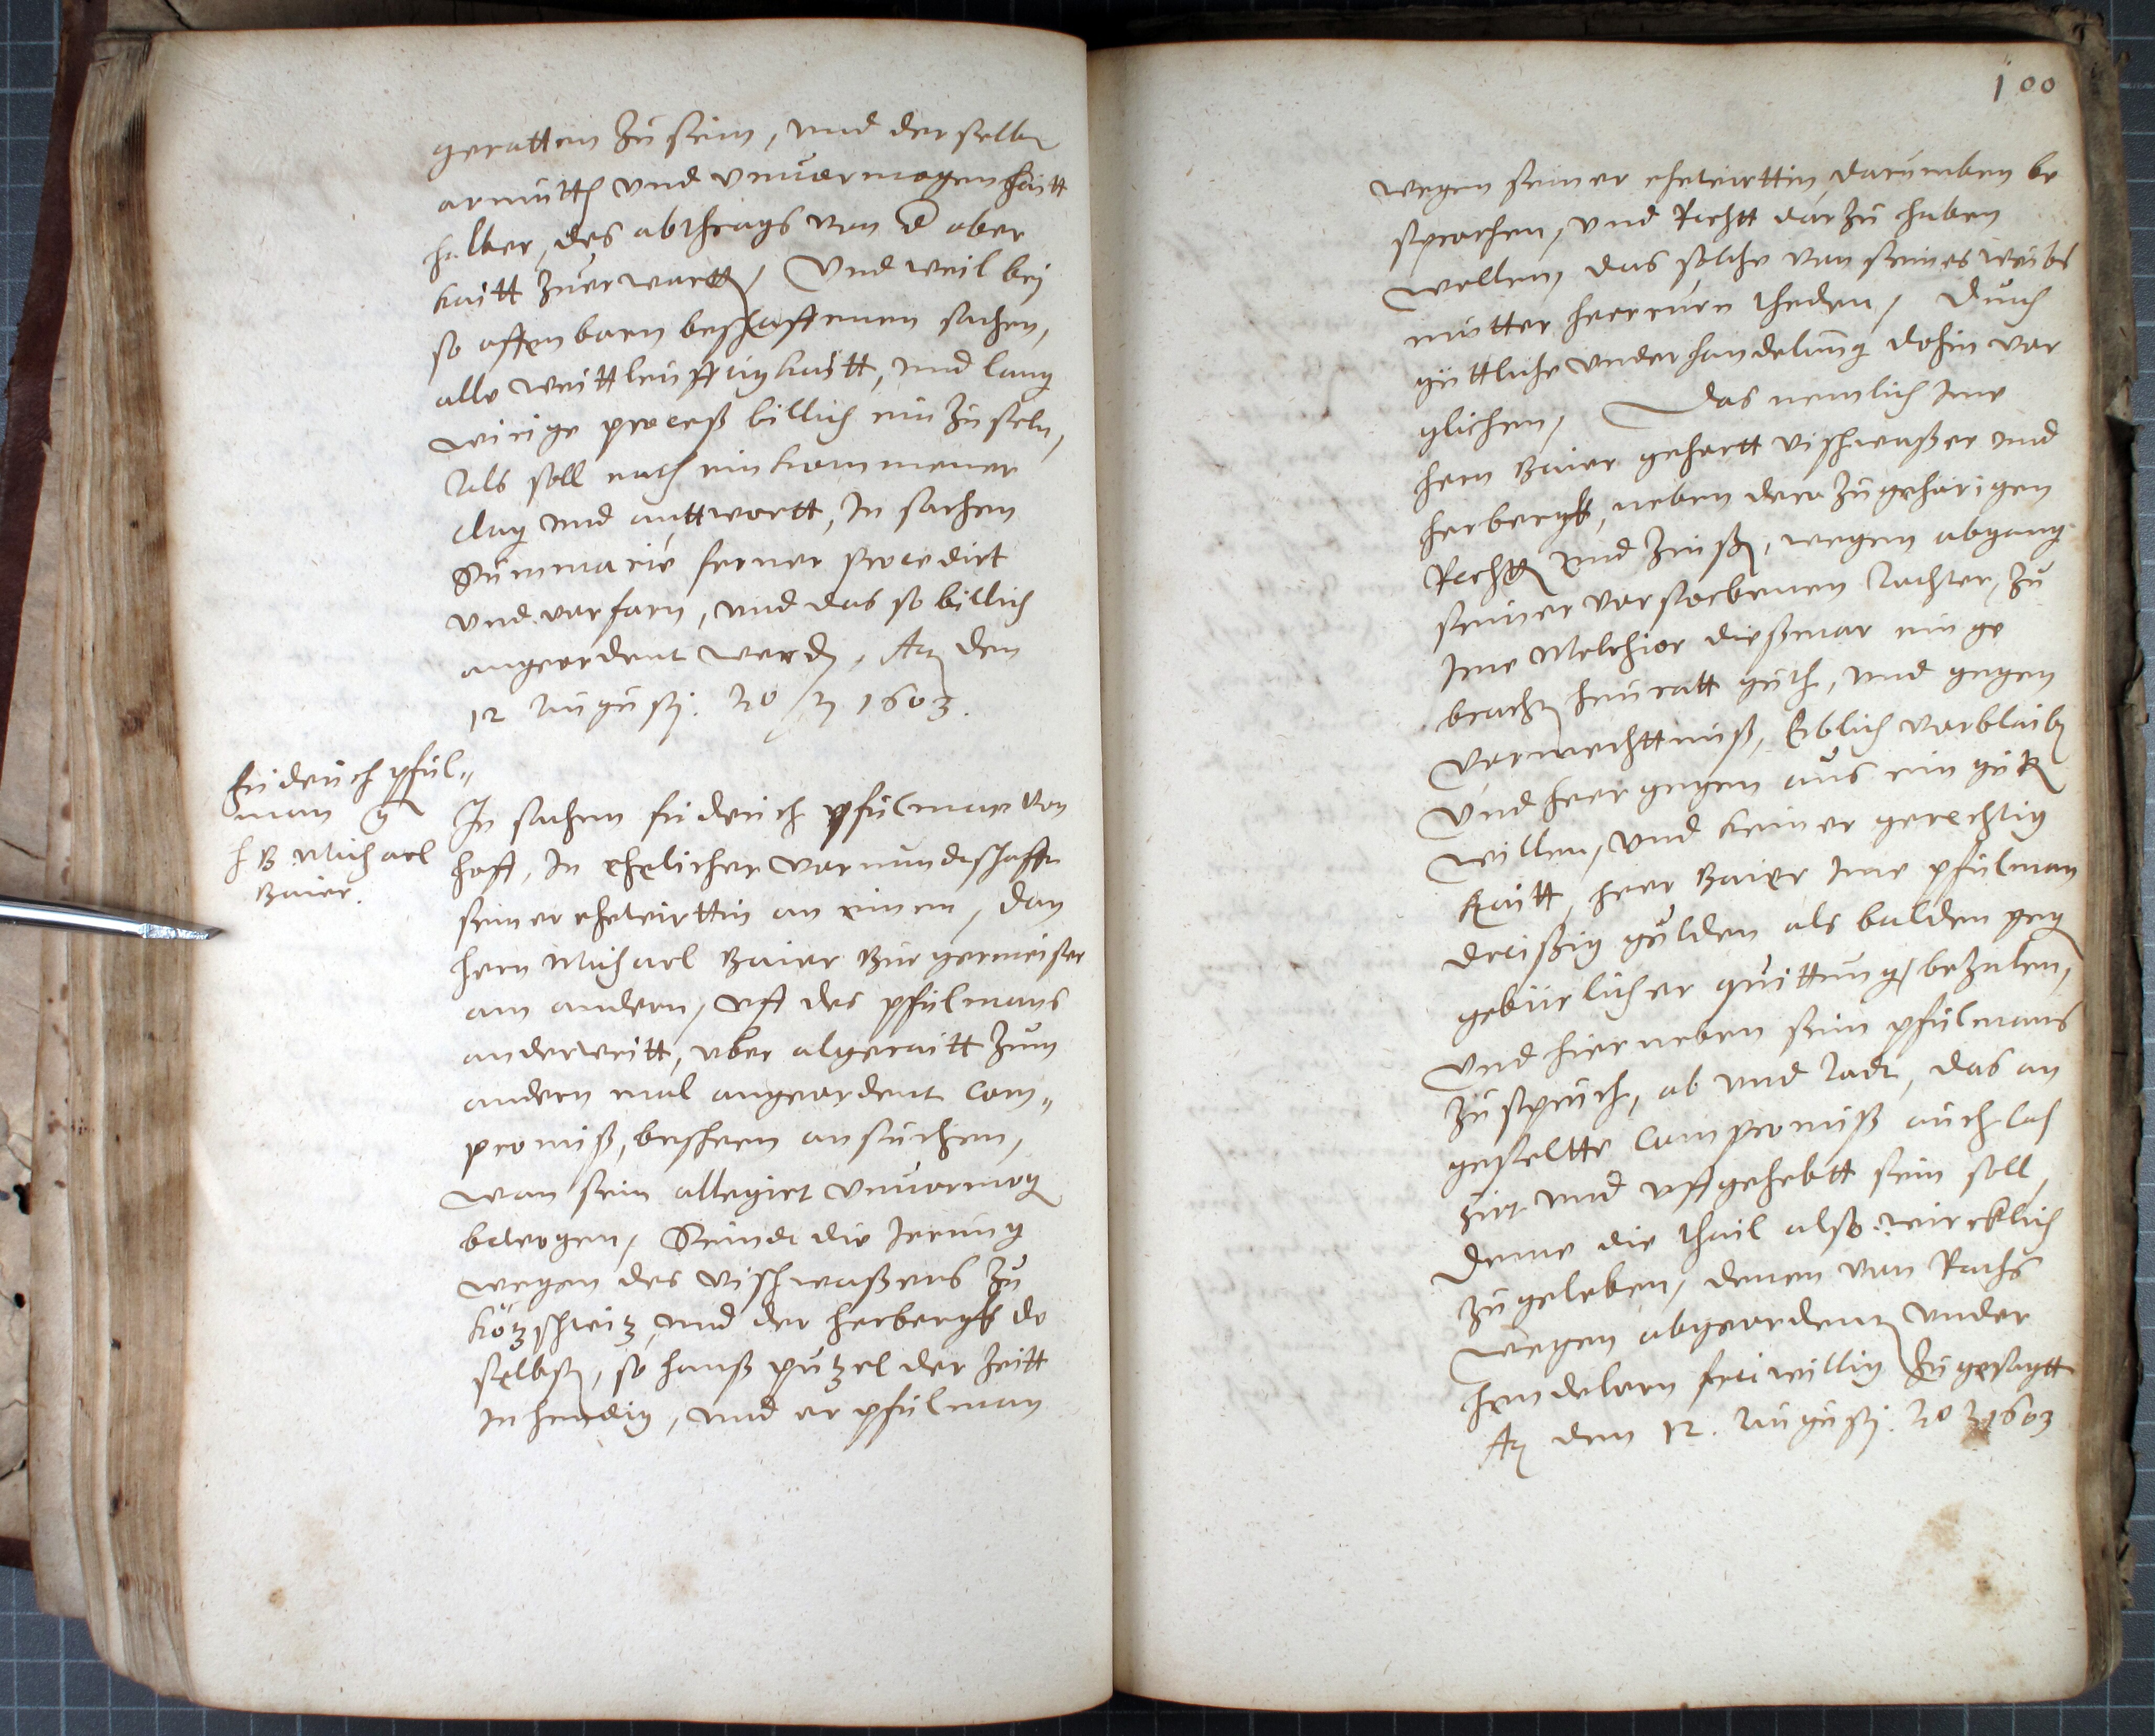 geratten zu sein, und derselben
armutth und unvermogenhaitt
halber, des abthrags von d ober
kaitt zuerwartten, Und weil bej
so offenbarn beschaffenen sachen,
alle weittleufftigkaitt, und lang
wirige proceß billich einzustelen,
Als soll nach einkommener
clag und anttwortt, In sachen
Summarie ferner procedirt
und verfarn, und das so billich
angeordent werden, Act den
12 Augusti. Ao 1603.
Friderich pfül„
man
h B Michael
Baier.
In sachen friderich pfülman von
hoff, In ehelicher vormundtschafft
seiner ehewirttin an einem, dan
hern Michael Baier Burgermeister
am andern, uff des pfülmans
anderweitt, uber algeraitt zum
andern mal angeordent Com„
promiß, bescheen ansuchen,
wan sein allegirt unvormog
bewogen, Seindt die Irrung
wegen des vischwaßers zu
Kötzschwitz, und der herberg do
selbst, so hanß putzel der zeitt
Inhendig, und er pfülman
100
wegen seiner ehewirttin darumben be
sprochen, und Recht darzu haben
wollen, das solche von seines weibs
mutter herrüre theden, Durch
güttliche underhandelung dohin vor
glichen, Das nemlich Ime
hern Baier gehortt vischwaßer und
herberg, neben dero zugehorigen
Rechtt und Zinß, wegen abgang
seiner vorstorbenen Tochter, zu
Ime Melchior dießmar einge
bracht heuratt guth, und gegen
vermechttnuß, Erblich vorblaiben
Und herrgegen aus ein guten
willen, und keiner gerechtig
kaitt, herr Baier Ime pfülman
dreißig gulden als balden geg
gebürlicher quittung, bezalen,
und hierneben sein pfülmans
zuspruch, ab und Todt, das an
gestelte Compromiß auch Cas
sirt und uffgehebtt sein soll,
Deme die thail also wircklich
zugeleben, denen von Raths
wegen abgeordenten under
hendelern freiwillig zugesagtt
Act den 12. Augusti. Ao 1603